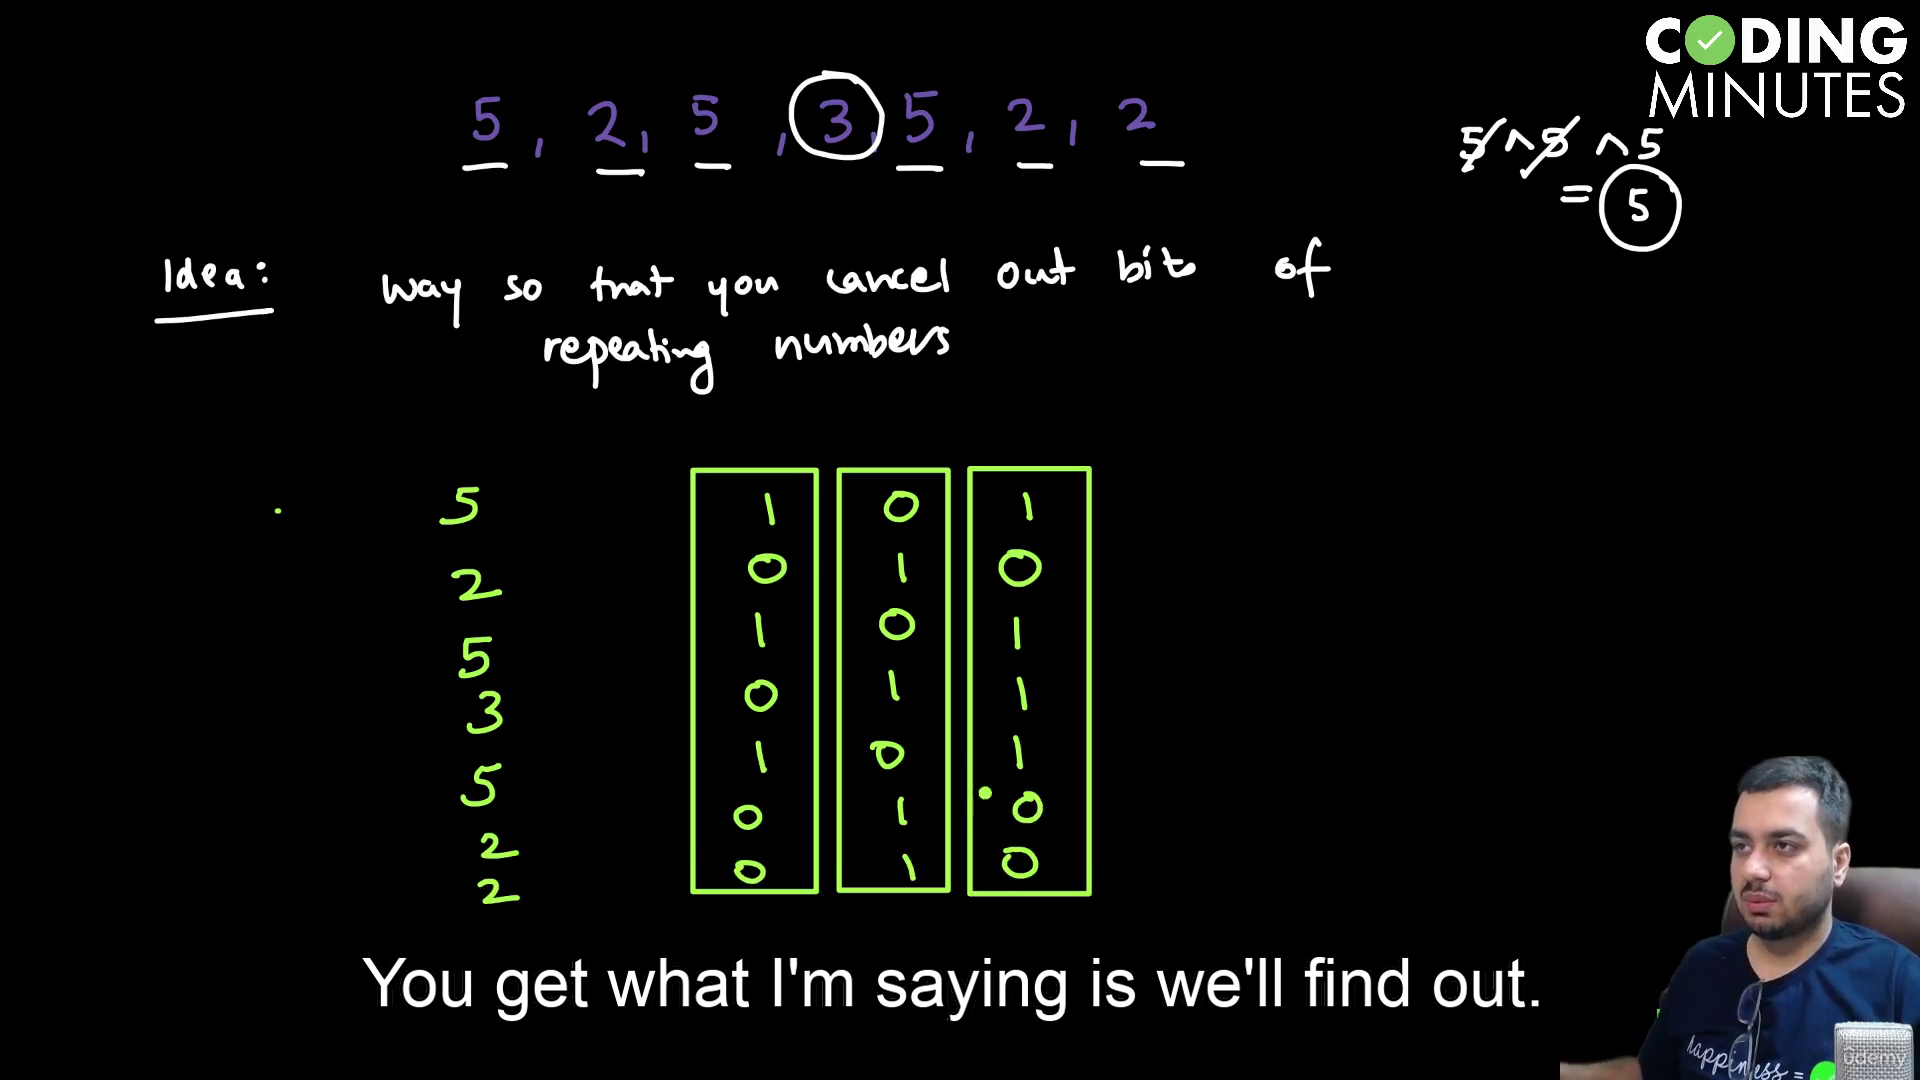 CODING
MINUTES
5, 2, 5, 3, 5, 2, 2
5 ^ 5 ^ 5
= 5
Idea: way so that you cancel out bits of
repeating numbers
5 1 0 1
2 0 1 0
5 1 0 1
3 0 1 1
5 1 0 1
2 0 1 0
2 0 1 0
You get what I'm saying is we'll find out.
happiness =
ûdemy